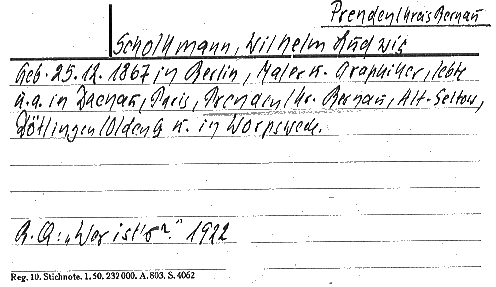 Prenden/Kreis Bernau
Scholkmann, Wilhelm Ludwig
Geb. 25.12.1867 in Berlin, Maler u. Graphiker, lebte
u.a. in Dachau, Paris, Prenden/Kr. Bernau, Alt-Geltow,
Dötlingen/Oldenb u. in Worpswede.
A.Q: „Wer ist's?" 1922
Reg. 10. Stichnote. 1. 50. 232000. A. 803. S. 4062